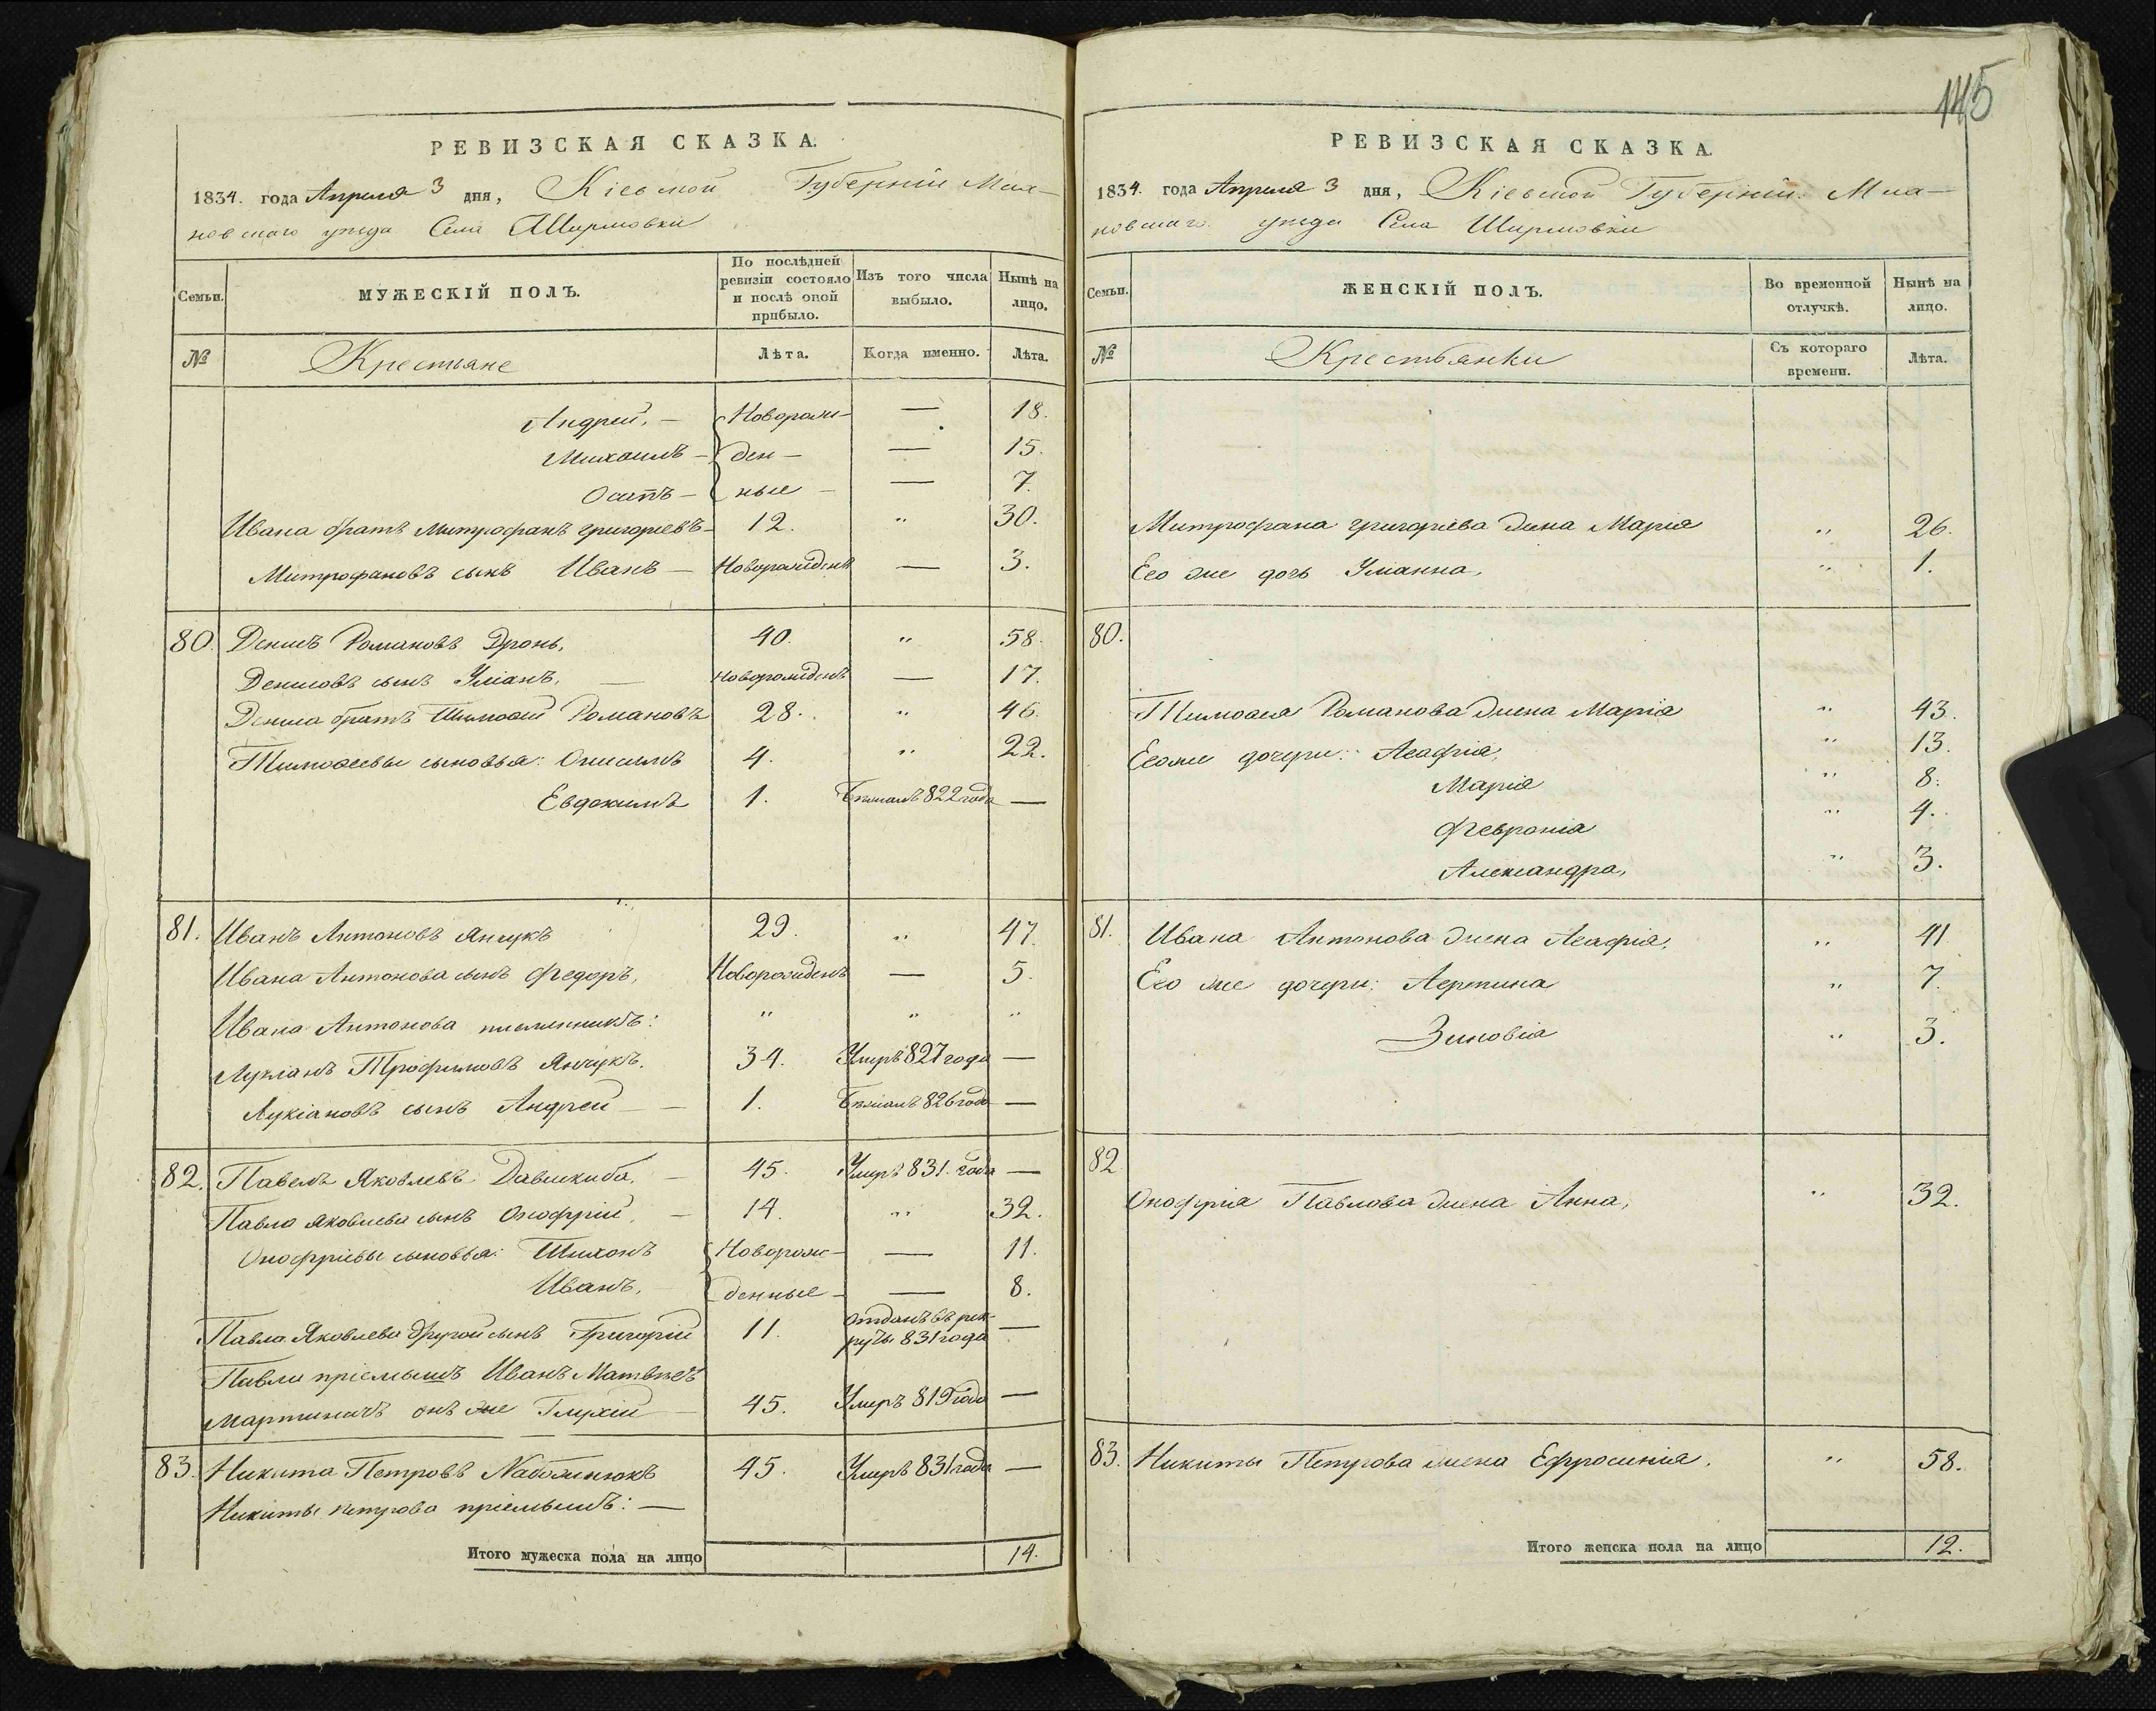 РЕВИЗСКАЯ СКАЗКА.
1834. года Апреля 3 дня, Кіевской Губерніи Мах-
новскаго уезда Села Ширмовки
Семьи. МУЖЕСКІЙ ПОЛЪ. По послѣдней ревизіи состояло и послѣ оной прибыло. Изъ того числа выбыло. Нынѣ на лицо.
№ Крестьяне Лѣта. Когда именно. Лѣта.
Андрей, — Новорож- — 18.
Михаилъ — ден — — 15.
Осипъ — ные — — 7.
Ивана братъ Митрофанъ григорьевъ — 12. " 30.
Митрофановъ сынъ Иванъ — Новорожденъ — 3.
80. Денисъ Романовъ Дронь, 40. " 58.
Денисовъ сынъ Уліанъ, — новорожденъ — 17.
Дениса братъ Тимофей Романовъ 28. " 46.
Тимофеевы сыновья: Онисимъ 4. " 22.
Евдокимъ 1. Бежалъ 822 года —
81. Иванъ Антоновъ Янчукъ 29. " 47.
Ивана Антонова сынъ Федоръ, Новорожденъ — 5.
Ивана Антонова племянникъ: " " "
Лукіанъ Трофимовъ Янчукъ. 34. Умръ 827 года —
Лукіановъ сынъ Андрей — — 1. Бежалъ 826 года —
82. Павелъ Яковлевъ Давискиба. — 45. Умръ 831. года —
Павла Яковлева сынъ Онофрій, — 14. " 32.
Онофріевы сыновья: Тихонъ Новорож- — 11.
Иванъ, денные — — 8.
Павла Яковлева другой сынъ Григорій 11. отданъ въ рек-
руты 831 года —
Павла пріемышъ Иванъ Матвѣевъ
Мартиничъ онъ же Глухій — 45. Умръ 819 года —
83. Никита Петровъ Набожнюкъ 45. Умръ 831 года —
Никиты петрова пріемышъ: —
Итого мужеска пола на лицо 14.
145
РЕВИЗСКАЯ СКАЗКА.
1834. года Апреля 3 дня, Кіевской Губерніи Мах-
новскаго уезда Села Ширмовки
Семьи. ЖЕНСКІЙ ПОЛЪ. Во временной отлучкѣ. Нынѣ на лицо.
№ Крестьянки Съ котораго времени. Лѣта.
Митрофана григорьева жена Марія " 26.
Его же дочь Уліанна, " 1.
80.
Тимофея Романова жена Марія " 43.
Егоже дочери: Агафія, " 13.
Марія " 8.
Февронія " 4.
Александра, " 3.
81. Ивана Антонова жена Агафія, " 41
Его же дочери: " 7.
Зиновіа " 3.
82
Онофрія Павлова жена Анна, " 32.
83. Никиты Петрова жена Ефросинія, " 58.
Итого женска пола на лицо 12.